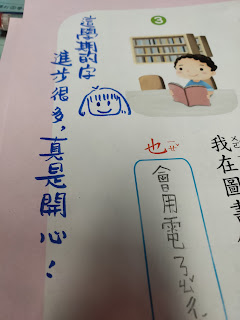 3
我在圖書
也
會用電
這學期的字
進步很多,真是開心!